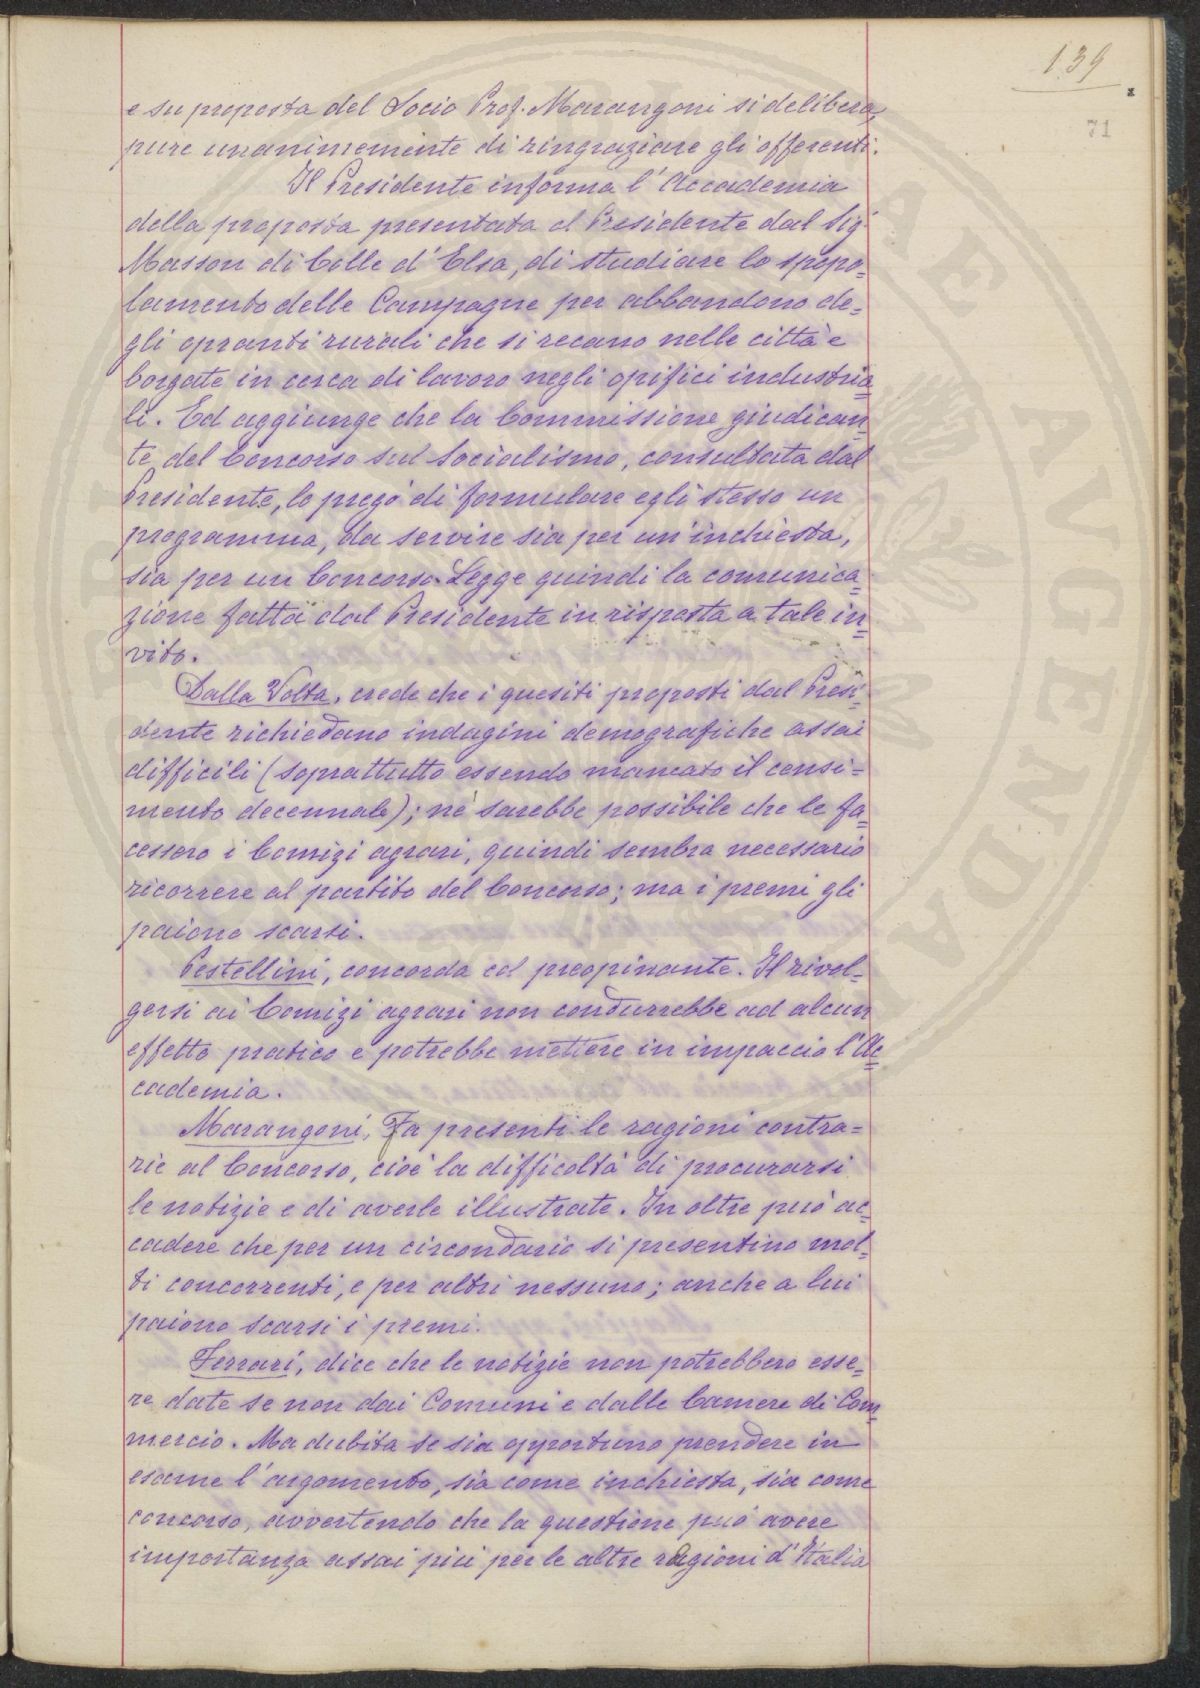 139
71
e su proposta del Socio Prof. Marangoni si delibera
pure unanimemente di ringraziare gli offerenti.
Il Presidente informa l'Accademia
della proposta presentata al Presidente dal Sig.
Masson di Colle d'Elsa, di studiare lo spopo=
lamento delle Campagne per abbandono de=
gli opranti rurali che si recano nelle città e
borgate in cerca di lavoro negli opifici industria=
li. Ed aggiunge che la Commissione giudican=
te del Concorso sul Socialismo, consultata dal
Presidente, lo pregò di formulare egli stesso un
programma, da servire sia per un'inchiesta,
sia per un Concorso. Legge quindi la comunica=
zione fatta dal Presidente in risposta a tale in=
vito.
Dalla Volta, crede che i quesiti proposti dal Presi=
dente richiedano indagini demografiche assai
difficili (soprattutto essendo mancato il censi=
mento decennale); nè sarebbe possibile che le fa=
cessero i Comizi agrari, quindi sembra necessario
ricorrere al partito del Concorso; ma i premi gli
paiono scarsi.
Pestellini, concorda col preopinante. Il rivol=
gersi ai Comizi agrari non condurrebbe ad alcun
effetto pratico e potrebbe mettere in impaccio l'Ac=
cademia.
Marangoni, Fa presenti le ragioni contra=
rie al Concorso, cioè la difficoltà di procurarsi
le notizie e di averle illustrate. In oltre può ac=
cadere che per un circondario si presentino mol=
ti concorrenti, e per altri nessuno; anche a lui
paiono scarsi i premi.
Ferrari, dice che le notizie non potrebbero esse=
re date se non dai Comuni e dalle Camere di Com=
mercio. Ma dubita se sia opportuno prendere in
esame l'argomento, sia come inchiesta, sia come
concorso, avvertendo che la questione può avere
importanza assai più per le altre ragioni d'Italia
PERPETUAE AVGENDAE